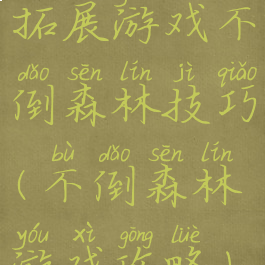 拓展游戏不
dǎo sēn lín jì qiǎo
倒森林技巧
bù dǎo sēn lín
(不倒森林
yóu xì gōng lüè
游戏攻略)